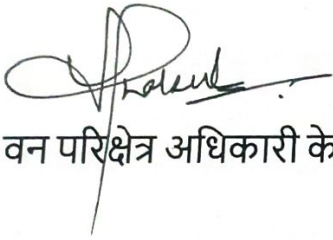 वन परिक्षेत्र अधिकारी के